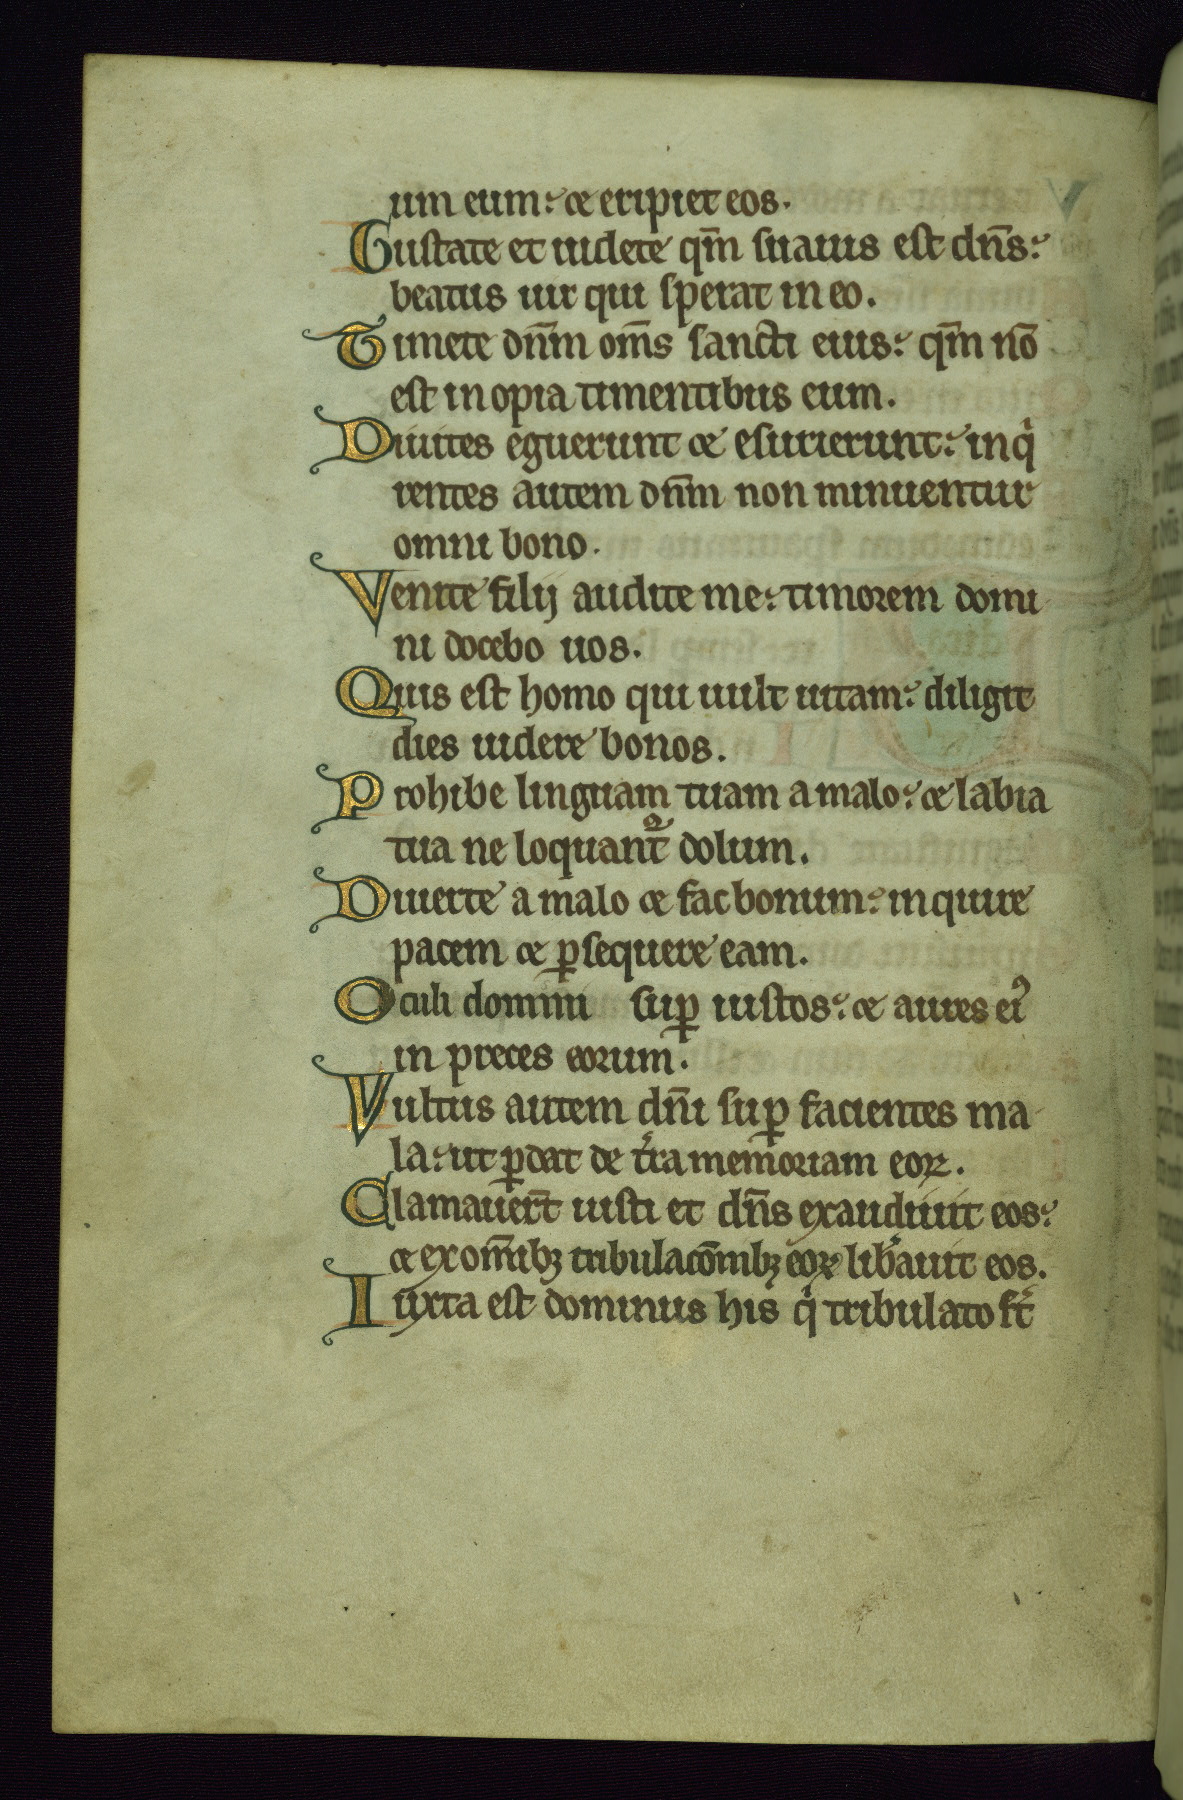 um eum: ⁊ eripiet eos.
Gustate et uidete qm̄ suauis est dn̄s:
beatus uir qui sperat in eo.
Timete dn̄m om̄s sancti eius: qm̄ nō
est inopia timentibus eum.
Diuites eguerunt ⁊ esurierunt: inqͥ
rentes autem dn̄m non minuentur
omni bono.
Venite filij audite me: timorem domi
ni docebo uos.
Quis est homo qui uult uitam: diligit
dies uidere bonos.
Prohibe linguam tuam a malo: ⁊ labia
tua ne loquant᷑ dolum.
Diuerte a malo ⁊ fac bonum: inquire
pacem ⁊ ꝑsequere eam.
Oculi domini suꝑ iustos: ⁊ aures eiꝰ
in preces eorum.
Vultus autem dn̄i suꝑ facientes ma
la: ut ꝑdat de t̾ra memoriam eoꝝ.
Clamauer̄t iusti et dn̄s exaudiuit eos:
⁊ ex om̄ibꝫ tribulacōnibꝫ eoꝝ lib̾auit eos.
Iuxta est dominus his qͥ tribulato st̾